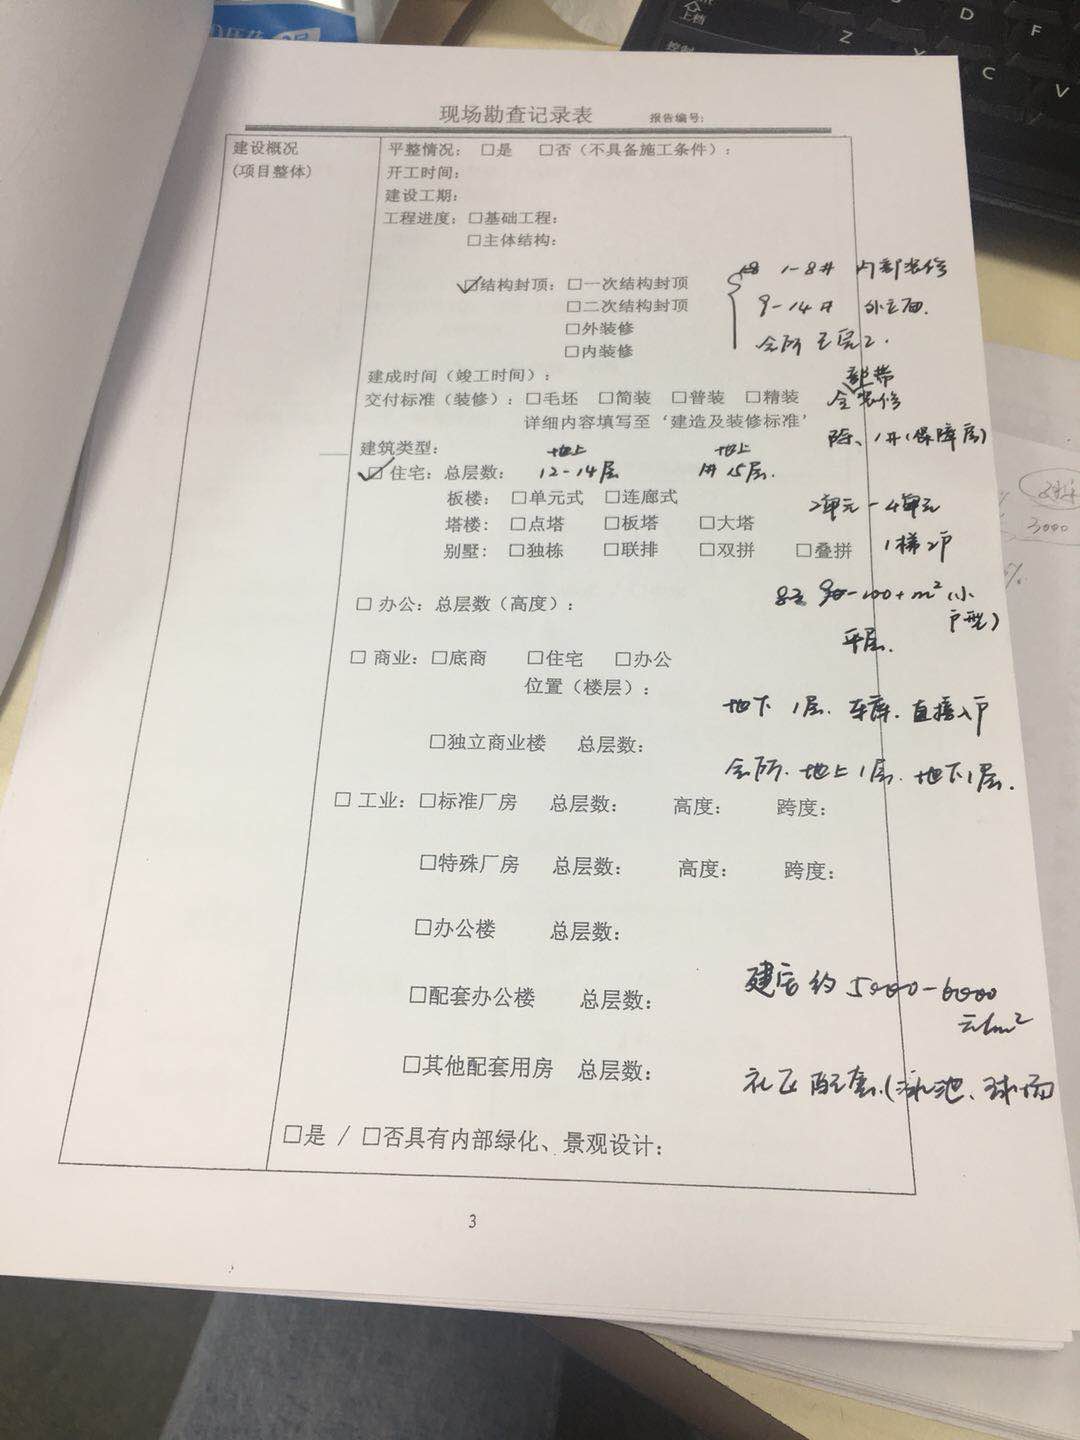 现场勘查记录表 报告编号:
建设概况
(项目整体)
平整情况: □是 □否(不具备施工条件):
开工时间:
建设工期:
工程进度: □基础工程:
□主体结构:
☑结构封顶: □一次结构封顶
□二次结构封顶
□外装修
□内装修
1-8# 内部装修
9-14# 外立面.
会所 已完工.
建成时间(竣工时间):
交付标准(装修): □毛坯 □简装 □普装 □精装
全部带装修
详细内容填写至‘建造及装修标准’
除、1#(保障房)
建筑类型:
☑住宅: 总层数: 地上12-14层 地上1#15层.
板楼: □单元式 □连廊式
2单元-4单元
塔楼: □点塔 □板塔 □大塔
别墅: □独栋 □联排 □双拼 □叠拼
1梯2户
□办公: 总层数(高度):
90-100+m²(小户型)
平层.
□商业: □底商 □住宅 □办公
位置(楼层):
地下1层.车库.直接入户
□独立商业楼 总层数:
会所.地上1层.地下1层.
□工业: □标准厂房 总层数: 高度: 跨度:
□特殊厂房 总层数: 高度: 跨度:
□办公楼 总层数:
□配套办公楼 总层数:
建安约5000-6000
元/m²
□其他配套用房 总层数:
社区配套.(泳池、球场
□是 / □否具有内部绿化、景观设计:
3
3000
上档
控制
Z
D
F
C
V